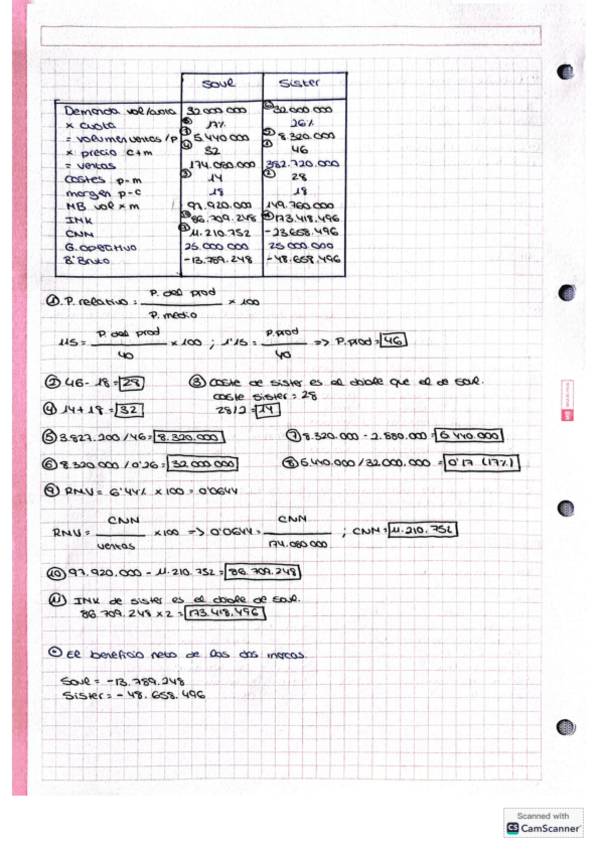 Soul Sister
Demanda vol/cuota 32 000 000 ⑥ 32 000 000
x cuota ⑧ 17% 26%
= volumen ventas /p ⑦ 5.440 000 ⑤ 8 320.000
x precio c+m ④ 32 ① 46
= ventas 174.080.000 382.720.000
Costes p-m ③ 14 ② 28
margen p-c 18 18
MB vol x m 97.920.000 149.760.000
INK ⑩ 86.709.248 ⑪ 173.418.496
CNN ⑨ 11.210.752 -23.658.496
G.operativo 25 000 000 25 000 000
Bº Bruto -13.789.248 -48.658.496
① P. relativo = P. del prod / P. medio x 100
115 = P. del prod / 40 x 100 ; 1'15 = P.prod / 40 => P.prod = 46
② 46 - 18 = 28
③ Coste de sister es el doble que el de soul.
coste sister = 28
④ 14 + 18 = 32
28/2 = 14
⑤ 3.827.200 / 46 = 8.320.000
⑦ 8.320.000 - 2.880.000 = 5.440.000
⑥ 8.320.000 / 0'26 = 32.000.000
⑧ 5.440.000 / 32.000.000 = 0'17 (17%)
⑨ RMV = 6'44% x 100 = 0'0644
RMV = CNN / ventas x100 => 0'0644 = CNN / 174.080 000 ; CNN = 11.210.752
⑩ 97.920.000 - 11.210.752 = 86.709.248
⑪ INK de sister es el doble de soul.
86.709.248 x 2 = 173.418.496
El beneficio neto de las dos marcas.
Soul = -13.789.248
Sister = - 48.658.496
Scanned with
CS CamScanner